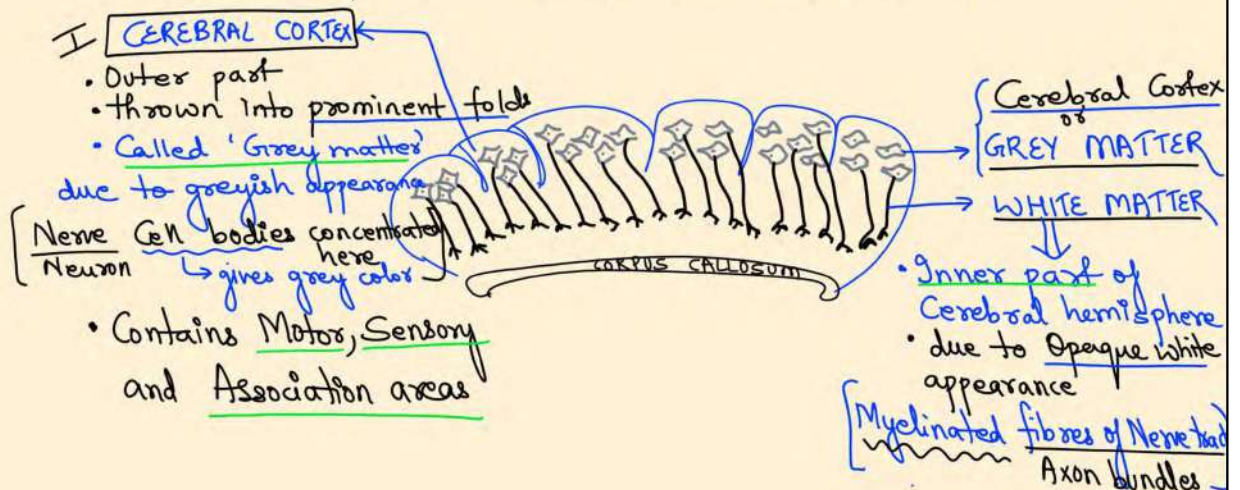 I CEREBRAL CORTEX
• Outer part
• thrown into prominent folds
• Called 'Grey matter'
due to greyish appearana
[Nerve Cell bodies concentrated
Neuron here
↳ gives grey color]
• Contains Motor, Sensory
and Association areas
CORPUS CALLOSUM
Cerebral Cortex
or
GREY MATTER
WHITE MATTER
• Inner part of
Cerebral hemisphere
• due to Opaque white
appearance
[Myelinated fibres of Nerve trad
Axon bundles